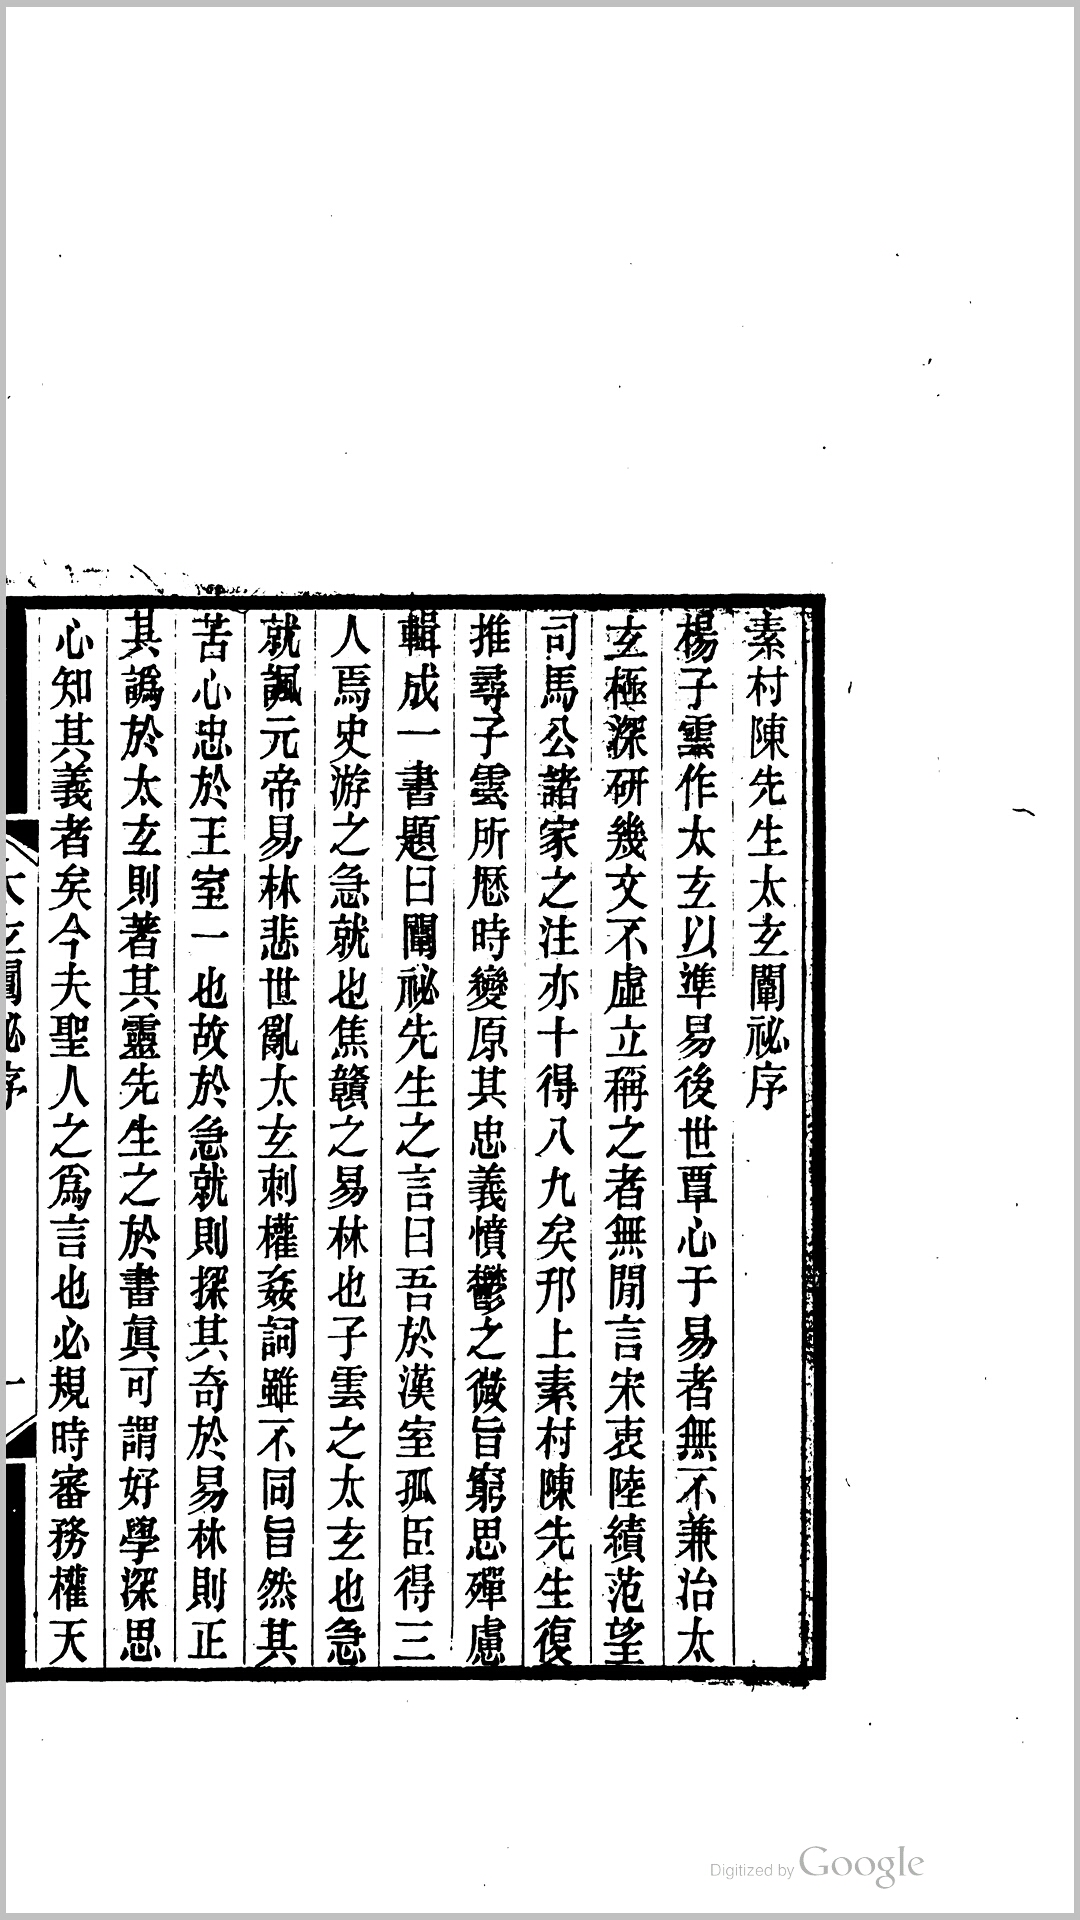 素村陳先生太玄闡祕序
楊子雲作太玄以準易後世覃心于易者無不兼治太
玄極深研幾文不虛立稱之者無閒言宋衷陸績范望
司馬公諸家之注亦十得八九矣邗上素村陳先生復
推尋子雲所厯時變原其忠義憤鬱之微旨窮思殫慮
輯成一書題曰闡祕先生之言曰吾於漢室孤臣得三
人焉史游之急就也焦贛之易林也子雲之太玄也急
就諷元帝易林悲世亂太玄刺權姦詞雖不同旨然其
苦心忠於王室一也故於急就則探其奇於易林則正
其譌於太玄則著其靈先生之於書眞可謂好學深思
心知其義者矣今夫聖人之爲言也必規時審務權天
太玄闡祕序
一
Digitized by Google